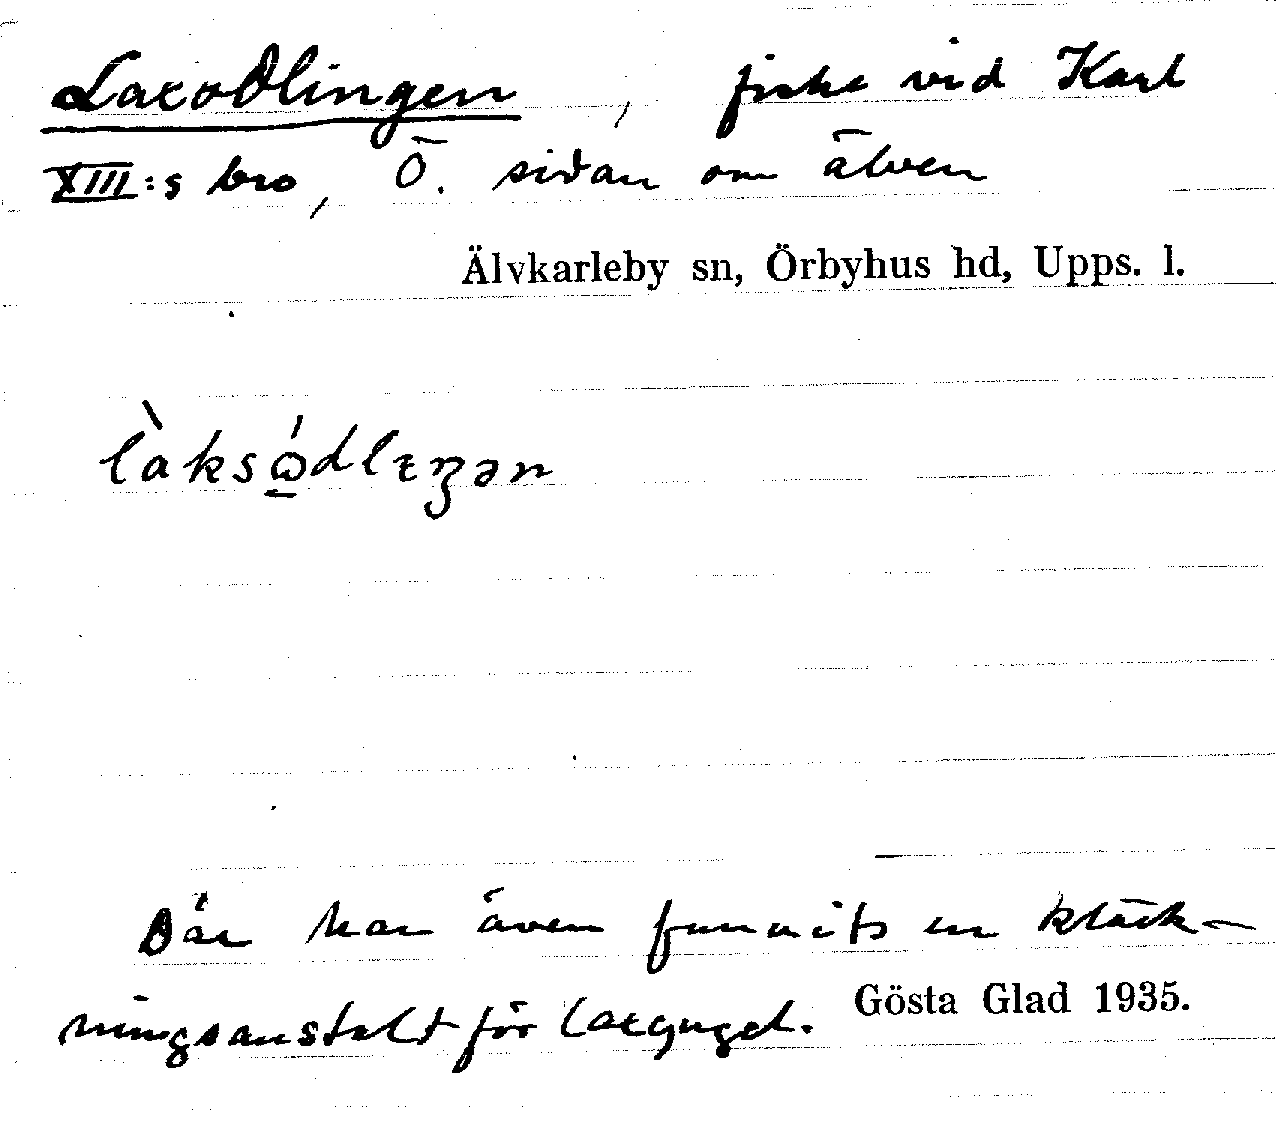 Laxodlingen, fiske vid Karl
XIII:s bro, Ö. sidan om älven
Älvkarleby sn, Örbyhus hd, Upps. l.
làksǫ̀dlɪŋən
Där har även funnits en kläck-
ningsanstalt för laxyngel.
Gösta Glad 1935.